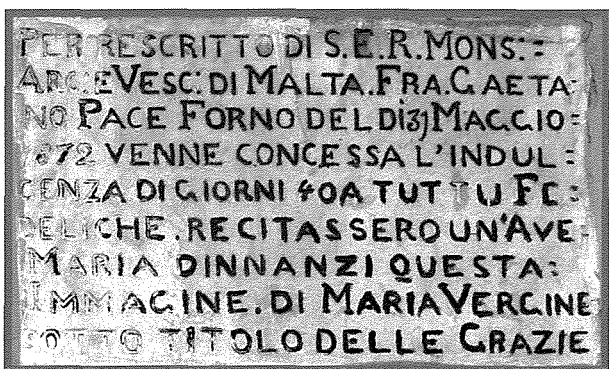 PER RESCRITTO DI S.E.R.MONS:=
ARC:EVESC: DI MALTA.FRA.GAETA=
NO PACE FORNO DEL DÌ 31 MAGGIO=
1872 VENNE CONCESSA L'INDUL=
GENZA DI GIORNI 40 A TUTTI I FE=
DELI CHE.RECITASSERO UN'AVE=
MARIA DINNANZI QUESTA:
IMMAGINE.DI MARIA VERGINE
SOTTO TITOLO DELLE GRAZIE